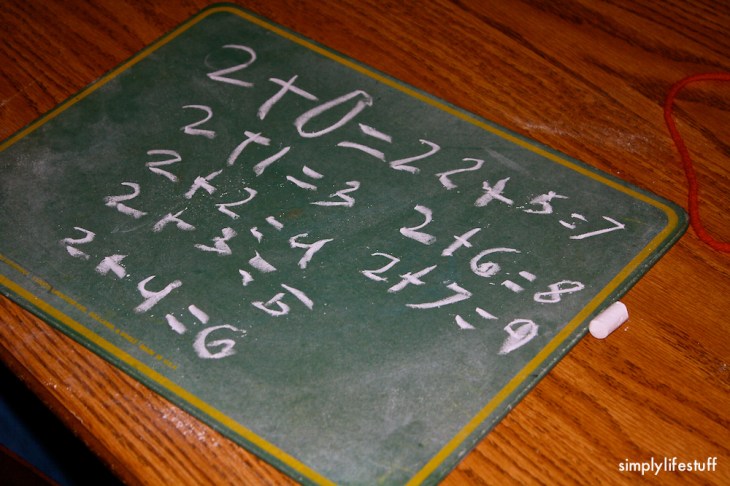 2+0=2
2+1=3
2+2=4
2+3=5
2+4=6
2+5=7
2+6=8
2+7=9
simplylifestuff